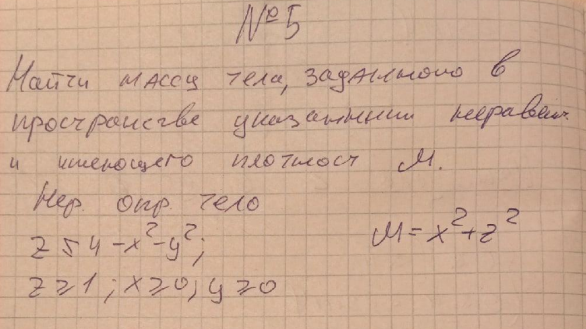 №5
Найти массу тела, заданного в
пространстве указанными неравен.
и имеющего плотност М.
Нер. опр. тело
z ≤ 4 - x² - y²;
M = x² + z²
z ≥ 1 ; x ≥ 0; y ≥ 0